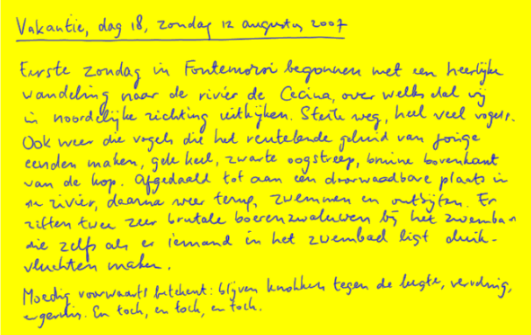 Vakantie, dag 18, zondag 12 augustus 2007
Eerste zondag in Fontemorsi begonnen met een heerlijke
wandeling naar de rivier de Cecina, over welks dal wij
in noordelijke richting uitkijken. Steile weg, heel veel vogels.
Ook weer die vogels die het ratelende geluid van jonge
eenden maken, gele keel, zwarte oogstreep, bruine bovenkant
van de kop. Afgedaald tot aan een doorwaadbare plaats in
de rivier, daarna weer terug, zwemmen en ontbijten. Er
zitten twee zeer brutale boerenzwaluwen bij het zwembad
die zelfs als er iemand in het zwembad ligt duik-
vluchten maken.
Moedig voorwaarts betekent: blijven knokken tegen de leegte, verveling,
ergernis. En toch, en toch, en toch.